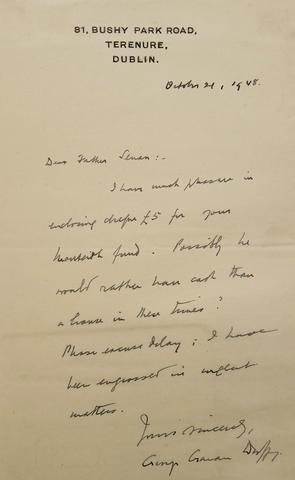 81, BUSHY PARK ROAD,
TERENURE,
DUBLIN.
October 21, 1948.
Dear Father Senan:-
I have much pleasure in
enclosing cheque £5 for your
Monteith fund. Possibly he
would rather have cash than
a house in these times?
Please excuse delay; I have
been engrossed in urgent
matters.
Yours sincerely,
George Gavan Duffy.